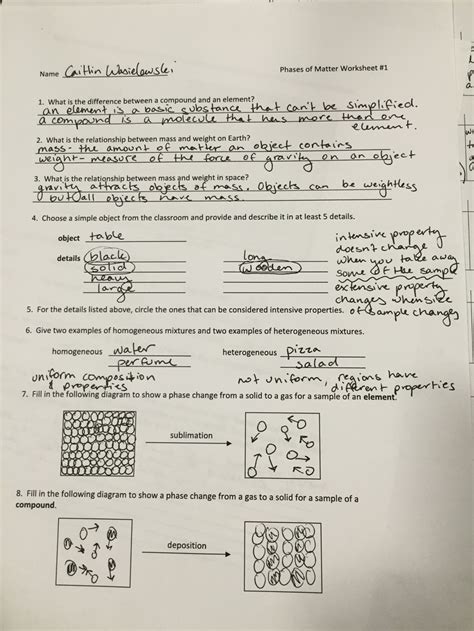 Name Caitlin Wasielewski Phases of Matter Worksheet #1
1. What is the difference between a compound and an element?
an element is a basic substance that can't be simplified.
a compound is a molecule that has more than one
element.
2. What is the relationship between mass and weight on Earth?
mass - the amount of matter an object contains
weight - measure of the force of gravity on an object
3. What is the relationship between mass and weight in space?
gravity attracts objects of mass. Objects can be weightless
but all objects have mass.
4. Choose a simple object from the classroom and provide and describe it in at least 5 details.
object table
details black long
solid wooden
heavy
large
intensive property
doesn't change
when you take away
some of the sample
extensive property
changes when size
of sample changes
5. For the details listed above, circle the ones that can be considered intensive properties.
6. Give two examples of homogeneous mixtures and two examples of heterogeneous mixtures.
homogeneous water heterogeneous pizza
perfume salad
uniform composition not uniform, regions have
& properties different properties
7. Fill in the following diagram to show a phase change from a solid to a gas for a sample of an element.
sublimation
8. Fill in the following diagram to show a phase change from a gas to a solid for a sample of a
compound.
deposition